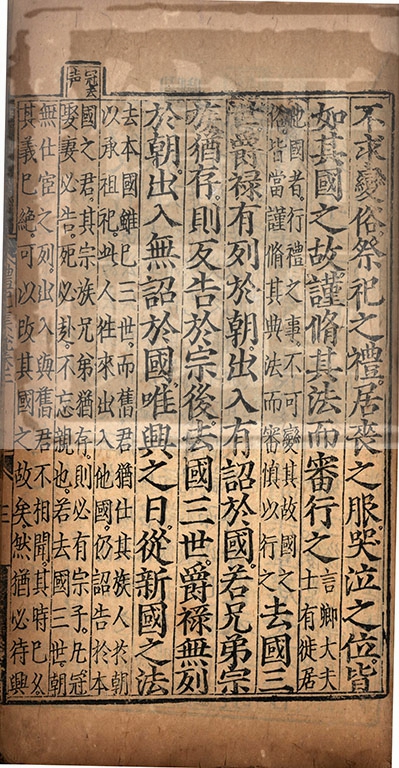 不求變俗祭祀之禮居喪之服哭泣之位皆
如其國之故謹脩其法而審行之
言卿大夫
士有徙居
他國者行禮之事不可變其故國之
俗皆當謹脩其典法而審慎以行之
去國三
世爵禄有列於朝出入有詔於國若兄弟宗
族猶存則反告於宗後去國三世爵禄無列
於朝出入無詔於國唯興之日從新國之法
去本國雖已三世而舊君猶仕其族人於朝
以承祖祀此人徃來出入他國仍詔告於本
冠去
声
國之君其宗族兄弟猶存則必有宗子凡冠
娶妻必告死必赴不忘親也若去國三世朝
無仕宦之列出入與舊君不相聞其時已久
其義已絶可以改其國之故矣然猶必待興